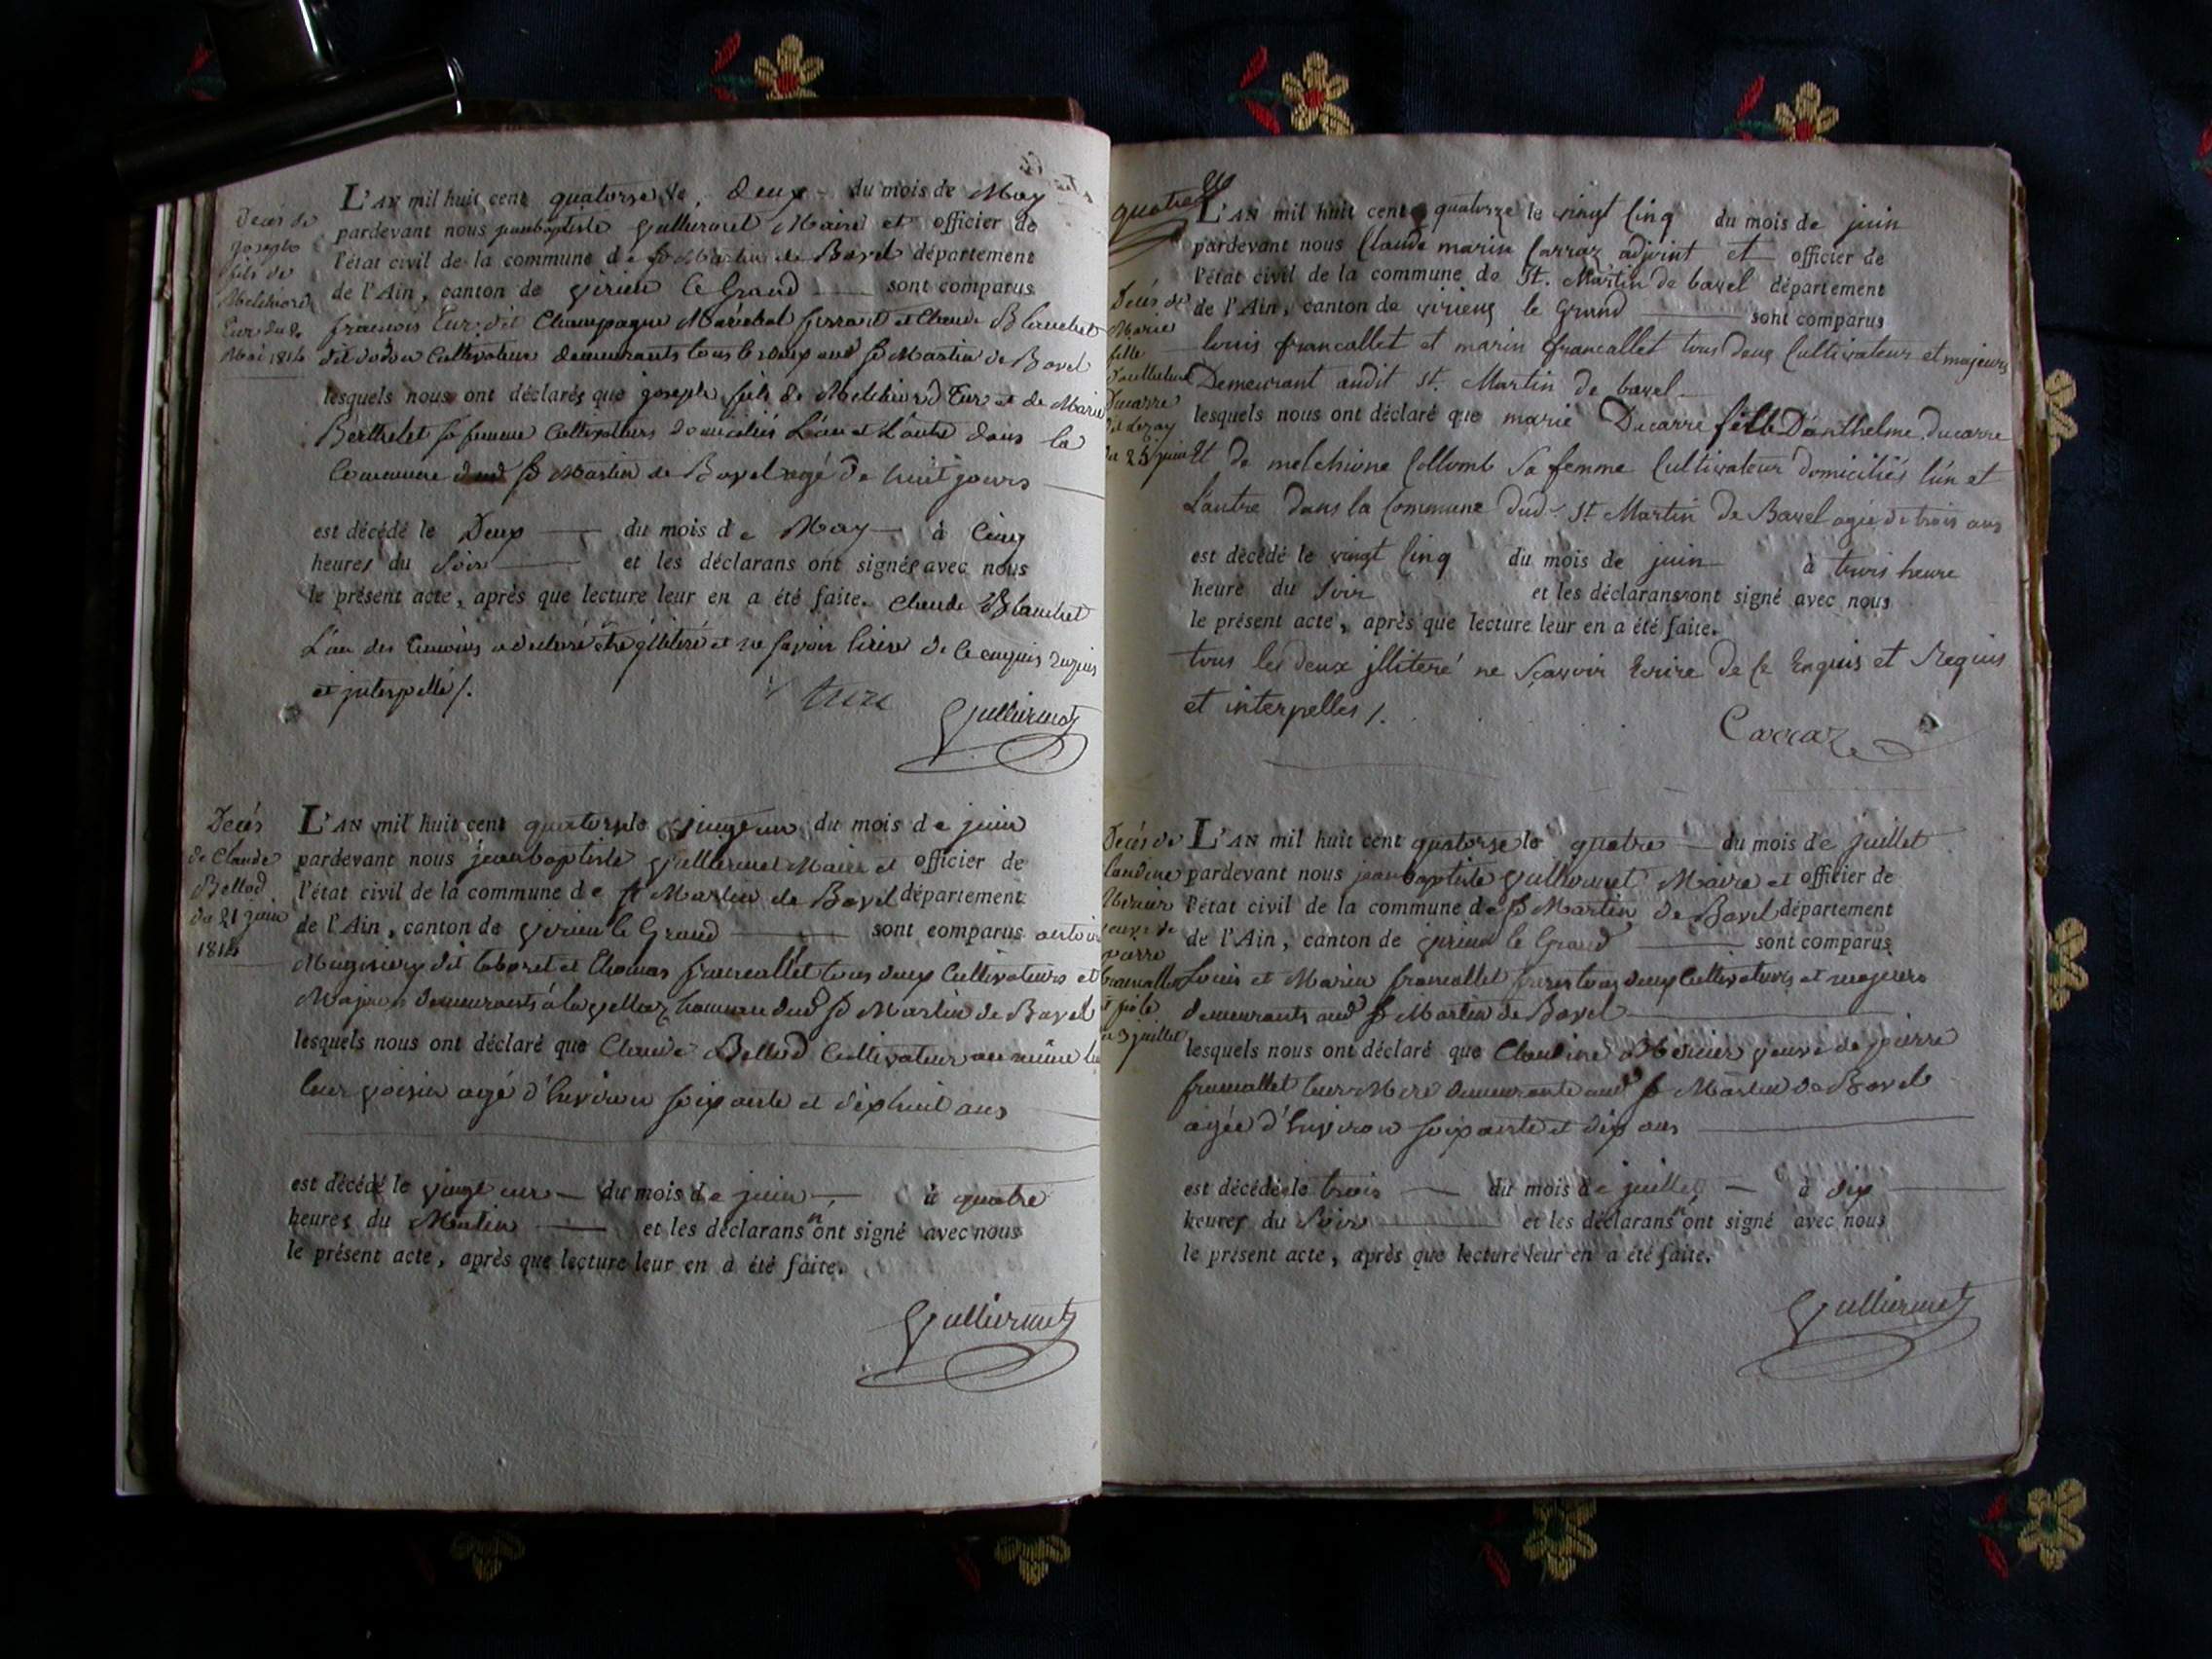 Decès de
joseph
fils de
Melchiord
Eur du 2
Mai 1814
L'AN mil huit cent quatorze le deux du mois de May
pardevant nous jeanbaptiste Gullermet Maire et officier de
l'état civil de la commune de St Martin de Bavel département
de l'Ain, canton de virieu le Grand sont comparus
francois Eur dit Champagne Maréchal ferrant et Claude Blanchet
dit dodon Cultivateur demeurants tous les deux aud St Martin de Bavel
lesquels nous ont déclarés que joseph fils de Melchiord Eur et de Marie
Berthelet sa femme Cultivateurs domiciliés L'un et L'autre dans la
Commune dud St Martin de Bavel agé de huit jours
est décédé le Deux du mois de May à Cinq
heures du Soir et les déclarans ont signés avec nous
le présent acte, après que lecture leur en a été faite. Claude Blanchet
L'un des temoins a declaré être illiteré et ne savoir Ecrire de Ce enquis requis
et interpellé /.
Gullermet
Decés
de Claude
Bellod
du 21 juin
1814
L'AN mil huit cent quatorze le vingt un du mois de juin
pardevant nous jeanbaptiste Gullermet Maire et officier de
l'état civil de la commune de St Martin de Bavel département
de l'Ain, canton de virieu le Grand sont comparus
dit taboret et Thomas francallet tous deux Cultivateurs et
Majeurs demeurants à la hameau dud St Martin de Bavel
lesquels nous ont déclaré que Claude Bellod Cultivateur au même
leur voisin agé d'Environ soixante et dixhuit ans
est décédé le vingt un du mois de juin à quatre
heures du Matin et les déclarans n'ont signé avec nous
le présent acte, après que lecture leur en a été faite.
Gullermet
quatre
Decès de
Marie
fille
Danthelme
Ducarre
du 25 juin
L'AN mil huit cent quatorze le vingt Cinq du mois de juin
pardevant nous Claude marin Carraz adjoint et officier de
l'état civil de la commune de St. Martin de bavel département
de l'Ain, canton de virieux le Grand sont comparus
louis francallet et marin francallet tous deux Cultivateur et majeurs
Demeurant audit St. Martin de bavel
lesquels nous ont déclaré que marie Ducarre fille D'anthelme ducarre
Et de melchione Collomb Sa femme Cultivateur domiciliés l'ún et
L'autre dans la Commune dud. St Martin De Bavel agée de trois ans
est décédé le vingt Cinq du mois de juin à trois heure
heure du Soir et les déclarans ont signé avec nous
le présent acte, après que lecture leur en a été faite.
tous les deux illiteré ne Sçavoir Ecrire de Ce Enquis et Requis
et interpelles /.
Carraz
Decès de
Claudine
Mercier
veuve de
pierre
francallet
du 3 juillet
L'AN mil huit cent quatorze le quatre du mois de juillet
pardevant nous jeanbaptiste Gullermet Maire et officier de
l'état civil de la commune de St Martin de Bavel département
de l'Ain, canton de virieu le Grand sont comparus
Louis et Marin francallet freres tous deux Cultivateurs et majeurs
demeurants aud St Martin de Bavel
lesquels nous ont déclaré que Claudine Mercier veuve de pierre
francallet leur Mere demeurante aud St Martin de Bavel
agée d'Environ soixante et dix ans
est décédé le trois du mois de juillet à dix
heures du Soir et les déclarans n'ont signé avec nous
le présent acte, après que lecture leur en a été faite.
Gullermet